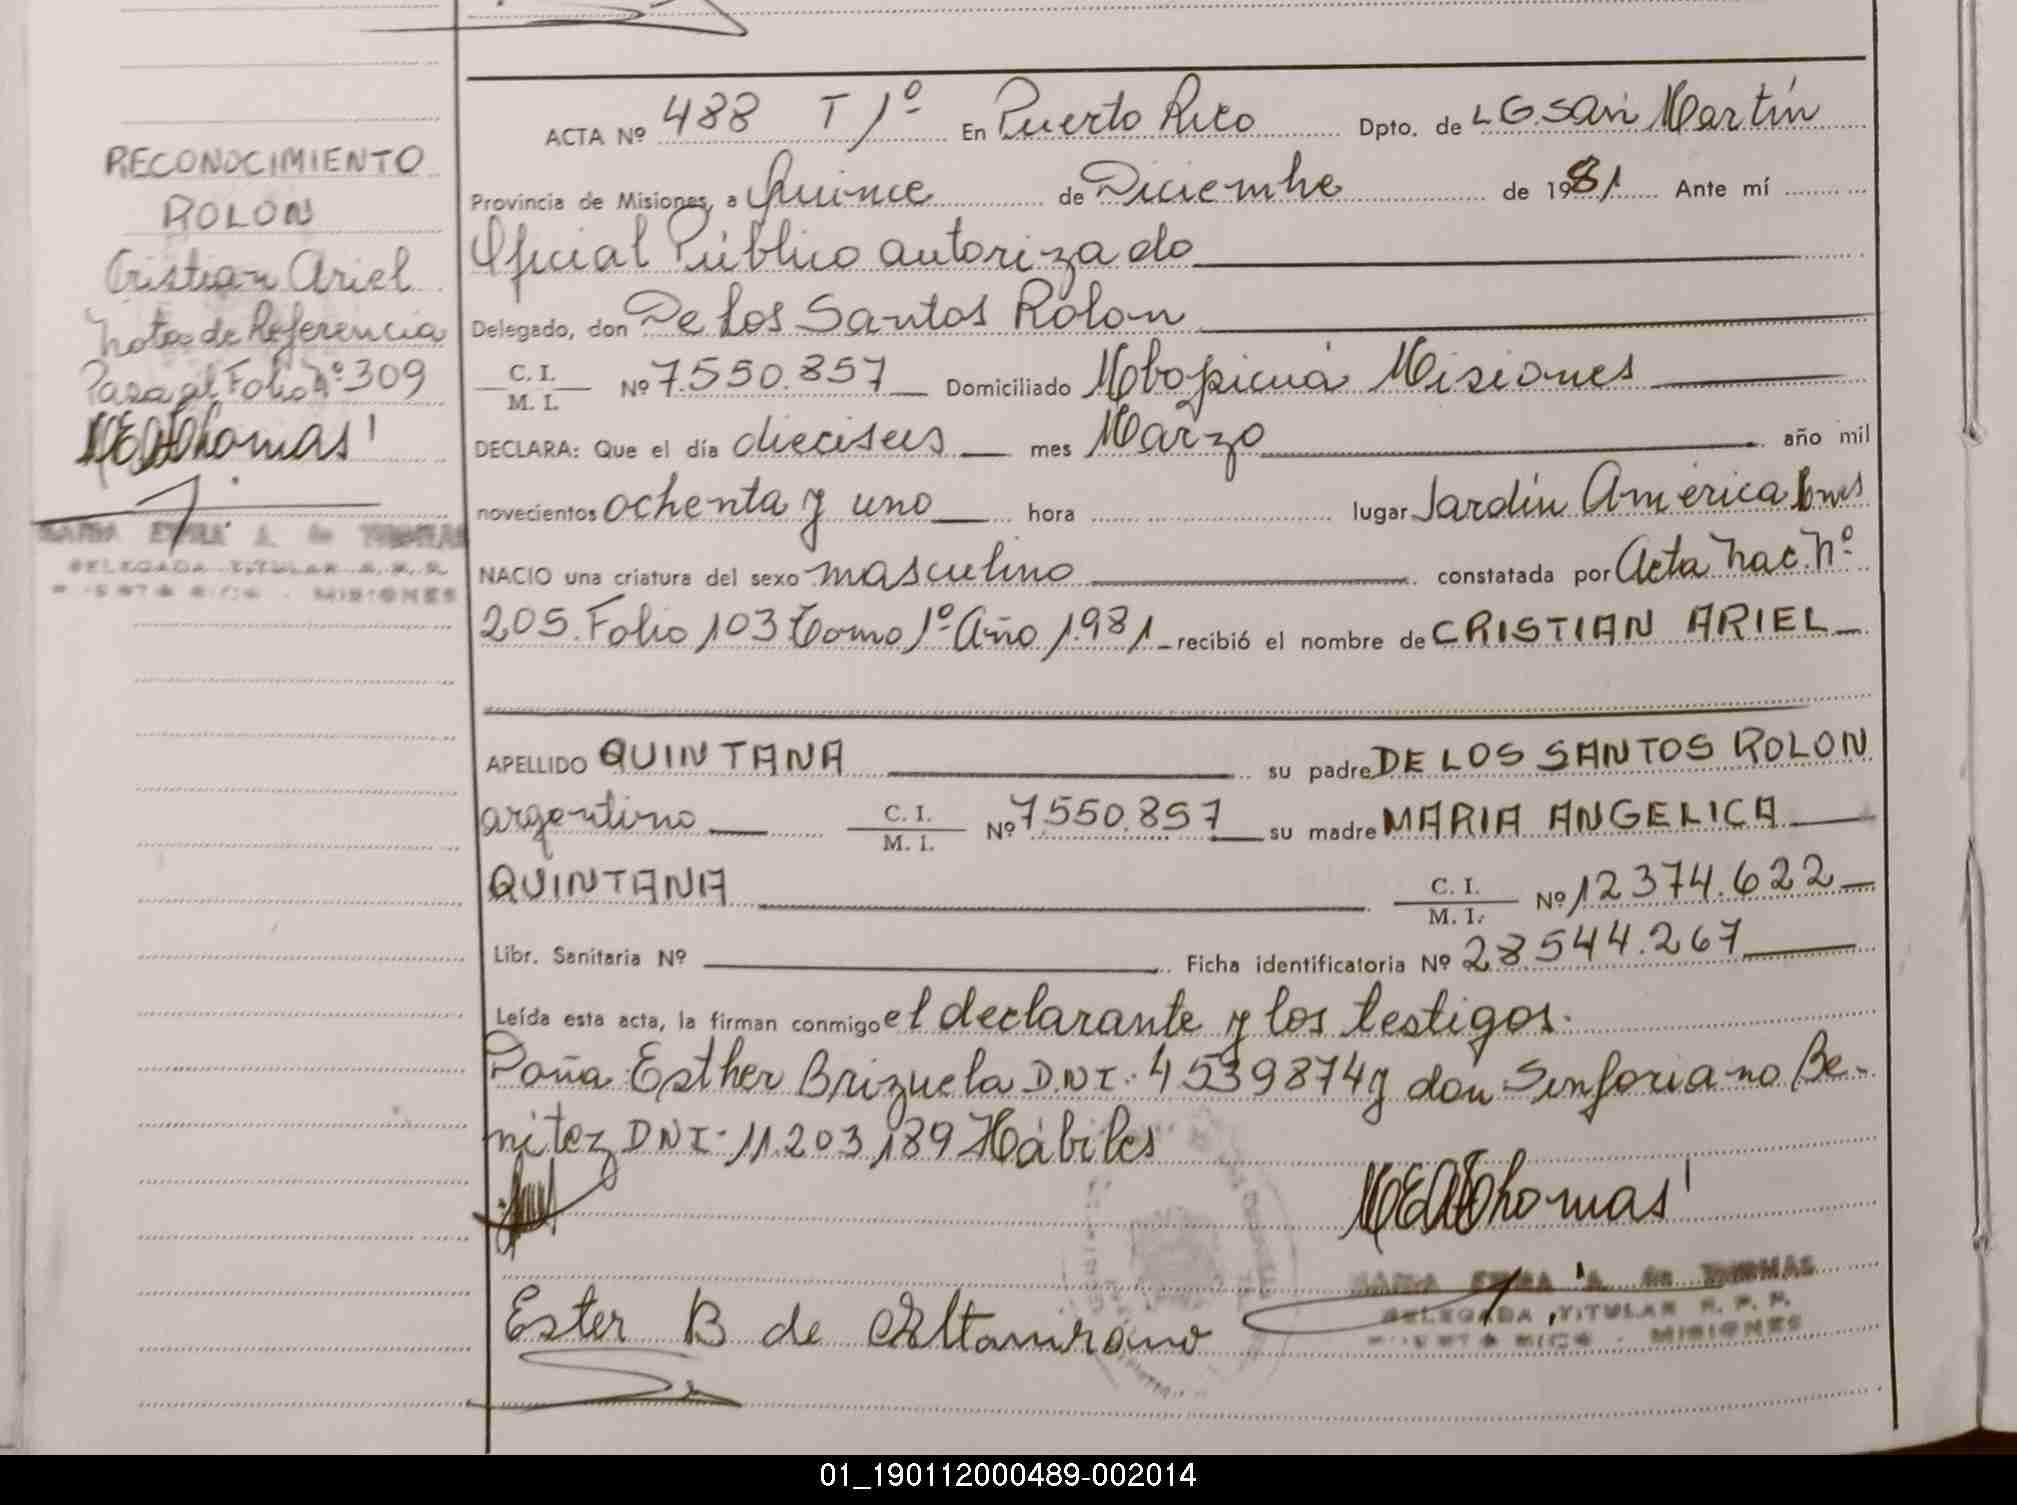 RECONOCIMIENTO
ROLON
Cristian Ariel
Nota de Referencia
Pasa al Folio Nº 309
MEAThomas
MARIA ELVIRA A. de THOMAS
DELEGADA TITULAR R. P. P.
PUERTO RICO - MISIONES
ACTA Nº 488 T 1º En Puerto Rico Dpto. de L G. San Martín
Provincia de Misiones, a Quince de Diciembre de 1981 Ante mí
Oficial Público autorizado
Delegado, don De los Santos Rolon
C. I.
M. I. Nº 7.550.857 Domiciliado Mbopicuá Misiones
DECLARA: Que el día dieciseis mes Marzo año mil
novecientos ochenta y uno hora lugar Jardín América
NACIO una criatura del sexo masculino constatada por Acta Nac. Nº
205. Folio 103 Tomo 1º Año 1.981 recibió el nombre de CRISTIAN ARIEL
APELLIDO QUINTANA su padre DE LOS SANTOS ROLON
argentino C. I.
M. I. Nº 7.550.857 su madre MARIA ANGELICA
QUINTANA C. I.
M. I. Nº 12.374.622
Libr. Sanitaria Nº Ficha identificatoria Nº 28.544.267
Leída esta acta, la firman conmigo el declarante y los testigos.
Doña Esther Brizuela D.N.I. 4539874 y don Sinforiano Be-
nitez DNI. 11.203.189 Hábiles
MEAThomas
MARIA ELVIRA A. de THOMAS
DELEGADA TITULAR R. P. P.
PUERTO RICO - MISIONES
Ester B de Altamirano
01_190112000489-002014